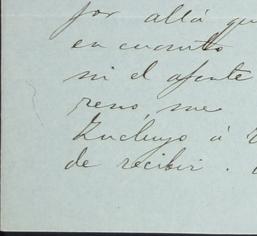 por allá qu
en cuanto
ni el agente
reno, me
Incluyo á
de recibir.